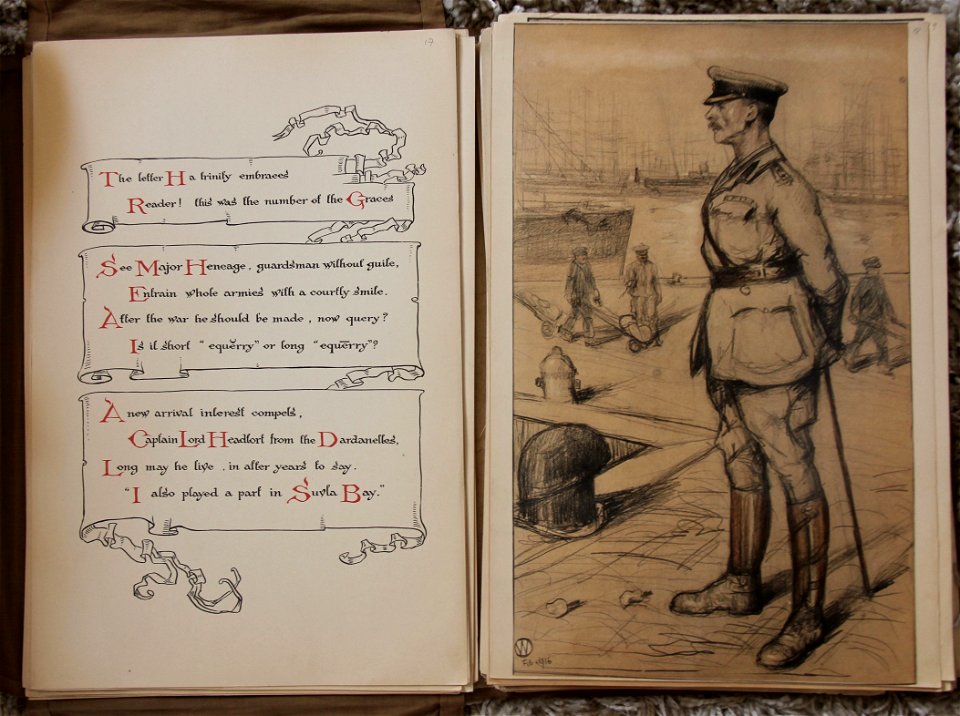 17
The letter H a trinity embraces
Reader! this was the number of the Graces
See Major Heneage, guardsman without guile,
Entrain whole armies with a courtly smile.
After the war he should be made, now query?
Is it short "equĕrry" or long "equērry"?
A new arrival interest compels,
Captain Lord Headfort from the Dardanelles,
Long may he live, in after years to say.
"I also played a part in Suvla Bay."
W
Feb. 1916